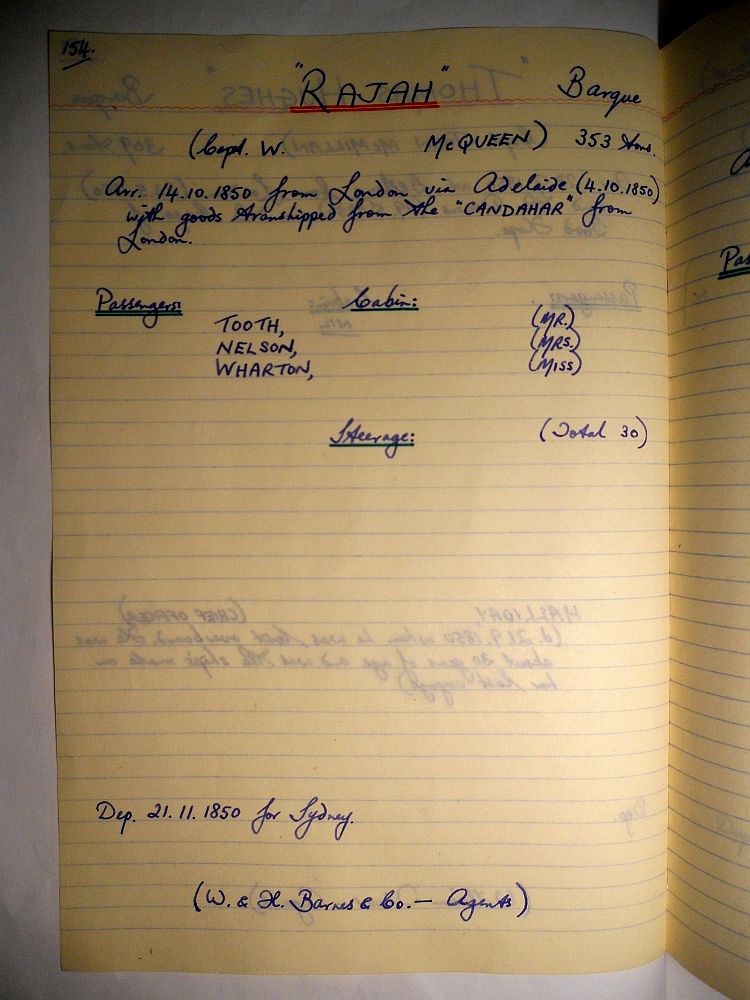 154.
"RAJAH" Barque
(Capt. W. McQUEEN) 353 tons.
Arr. 14.10.1850 from London via Adelaide (4.10.1850)
with goods transhipped from the "CANDAHAR" from
London.
Passengers: Cabin:
TOOTH, (MR.)
NELSON, (MRS.)
WHARTON, (MISS)
Steerage: (Total 30)
Dep. 21.11.1850 for Sydney.
(W. & H. Barnes & Co. — Agents)